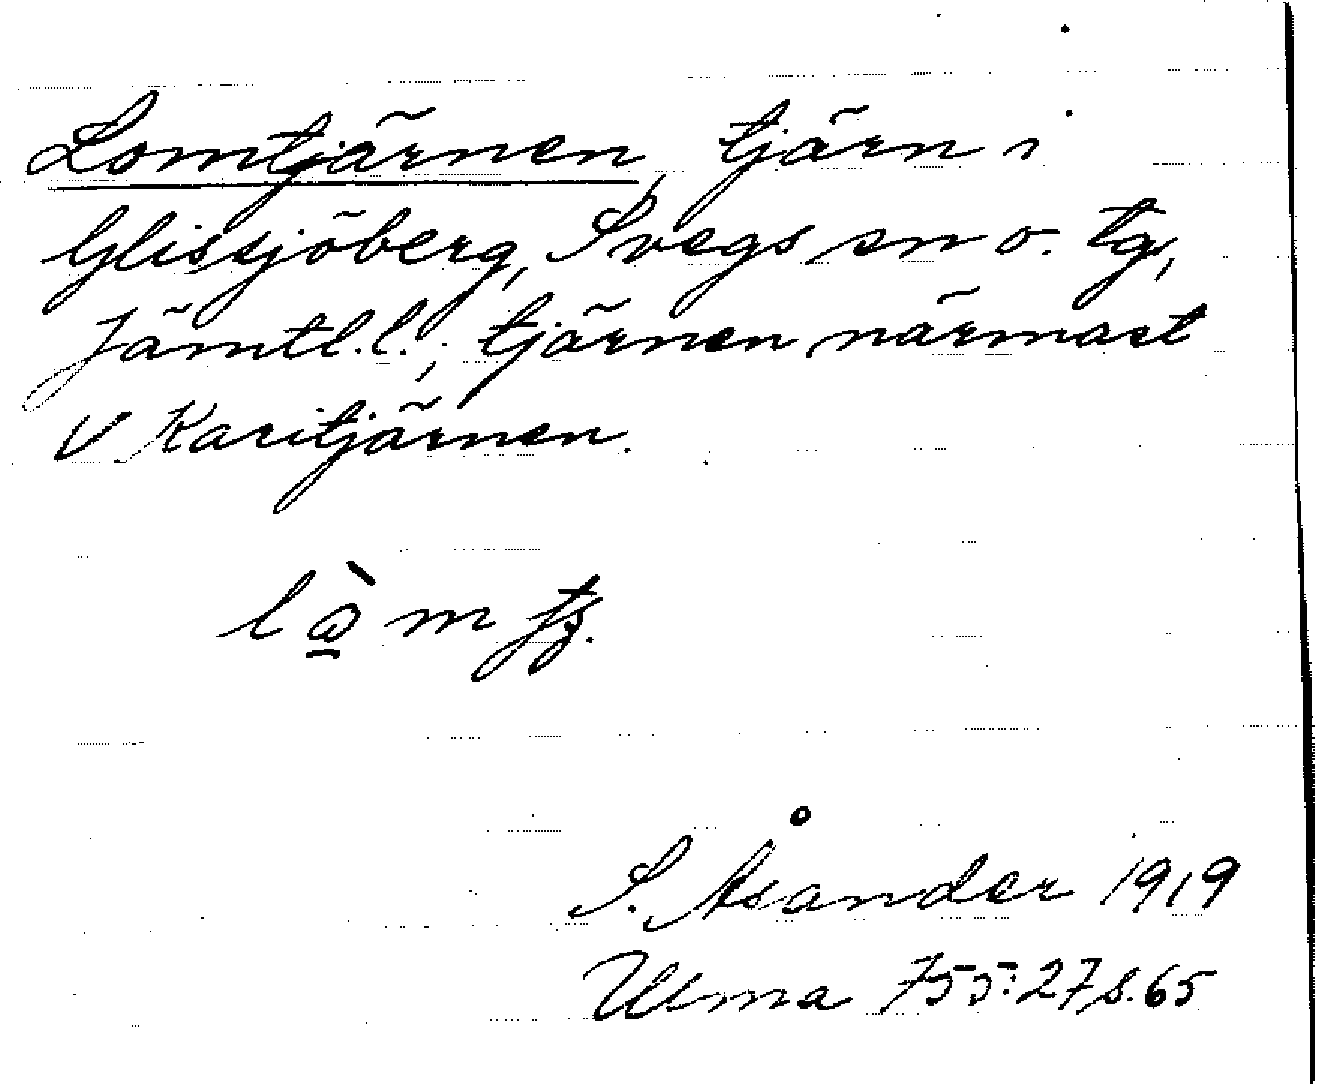 Lomtjärnen, tjärn i
Glissjöberg, Svegs sn o. tg,
Jämtl. l.; tjärnen närmast
V Karitjärnen.
S. Åsander 1919
Ulma 755:27 s. 65